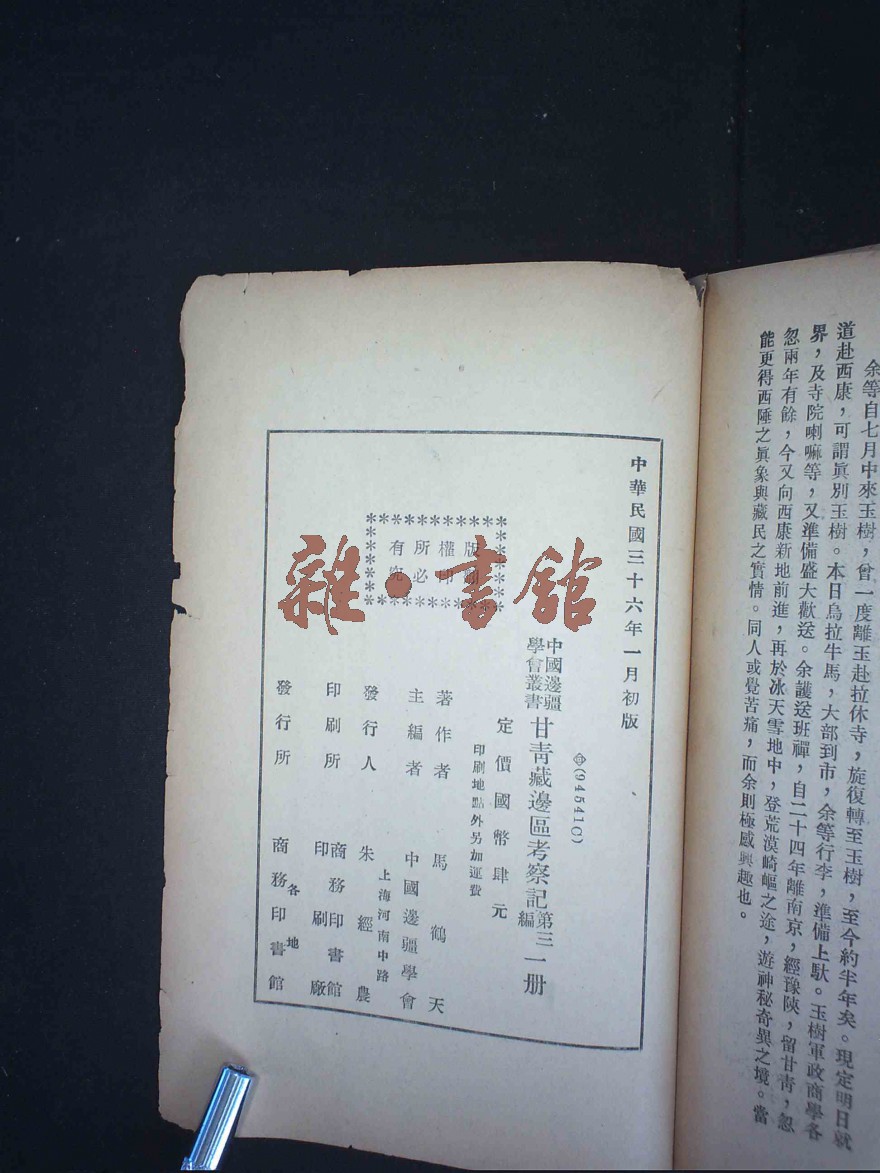 余等自七月中來玉樹，曾一度離玉赴拉休寺，旋復轉至玉樹，至今約半年矣。現定明日就
道赴西康，可謂眞別玉樹。本日烏拉牛馬，大部到市，余等行李，準備上馱。玉樹軍政商學各
界，及寺院喇嘛等，又準備盛大歡送。余護送班禪，自二十四年離南京，經豫陝，留甘靑，忽
忽兩年有餘，今又向西康新地前進，再於冰天雪地中，登荒漠崎嶇之途，遊神秘奇異之境。當
能更得西陲之眞象與藏民之實情。同人或覺苦痛，而余則極感興趣也。
中華民國三十六年一月初版
(94541C)
中國邊疆
學會叢書
甘靑藏邊區考察記
第三
編
一册
定價國幣肆元
印刷地點外另加運費
著作者 馬鶴天
主編者 中國邊疆學會
上海河南中路
發行人 朱經農
印刷所 商務印書館
印刷廠
各地
發行所 商務印書館
版權所有
翻印必究
雜·書館